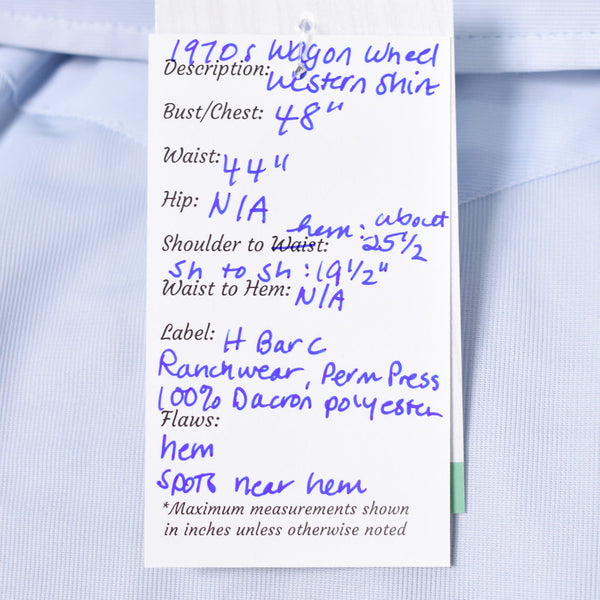 1970s Wagon Wheel
Description: Western Shirt
Bust/Chest: 48"
Waist: 44"
Hip: N/A
Shoulder to Waist: hem: about 25 1/2
Sh to Sh: 19 1/2"
Waist to Hem: N/A
Label: H Bar C
Ranchwear, Perm Press
100% Dacron polyester
Flaws:
hem
spots near hem
*Maximum measurements shown
in inches unless otherwise noted